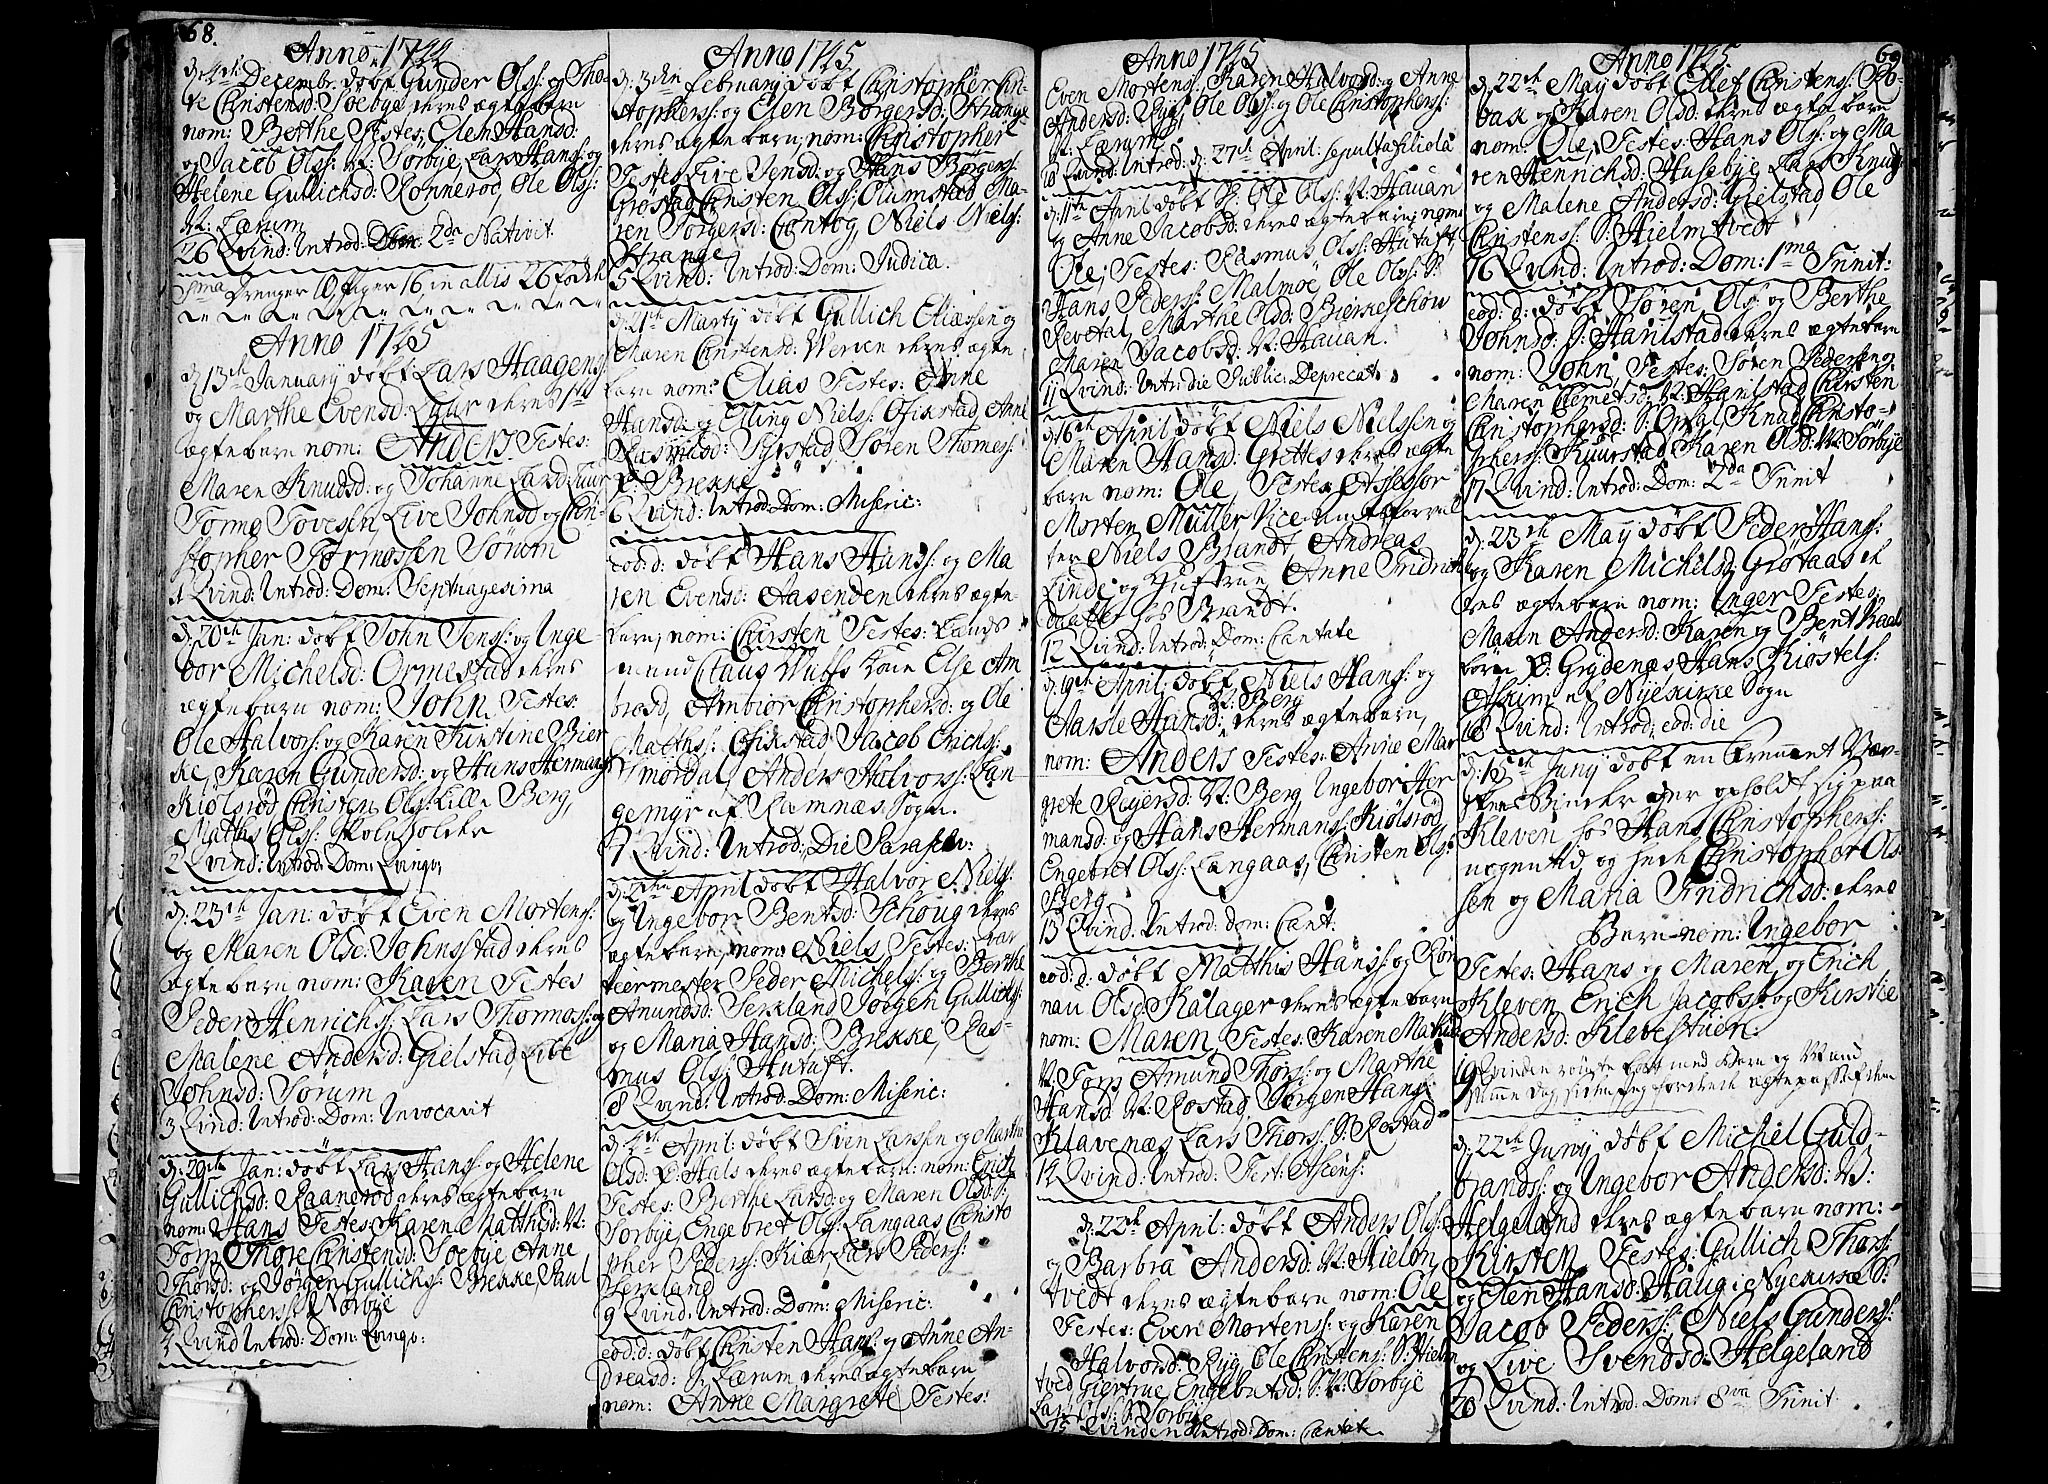 68.
Anno 1744
d: 4de Decembr. døbt Gunder Ols: og Tho-
re Christensd: Soebye deres ægte barn
nom: Berthe Testes: Elen Hansd:
og Jacob Ols: N: Sørbye, Lars Hans: og
Helene Gullichsd: Rønnerød, Ole Ols:
N: Lærum
26 Qvind: Introd: Dom: 2da Nativit.
Sma Drenger 10, Piger 16 in allis 26
Anno 1745
d: 13de January døbt Lars Haagens:
og Marthe Evensd: Luur deres 1ste
ægte barn nom: Anders Testes:
Maren Knudsd: og Johanne Larsd: Luur
Tormo Tovesen, Live Johnsd: og Chri-
stopher Tormosen Sørum
1 Qvind: Introd: Dom: Septuagesima
d: 20de Jan: døbt John Jens: og Inge-
bor Michelsd: Ormestad deres
ægte barn nom: John Testes:
Ole Halvors: og Karen Kirstine Bier
ke, Karen Gundersd: og Hans Hermans:
Kiølsrød Christen Ols: Lille Berg,
Mathis Ols: Skoleholder
2 Qvind: Introd: Dom: Qvinqv:
d: 23de Jan: døbt Even Mortens:
og Maren Olsd: Johnsstad deres
ægte barn nom: Karen Testes
Peder Henrichs: Lars Thommos: og
Malene Andersd: Gielstad, Live
Johnsd: Sørum
3 Qvind: Introd: Dom: Invocavit
d: 29de Jan: døbt Lars Hans: og Helene
Gullichsd: Raanerød deres ægte barn
nom: Hans Testes: Karen Matthisd: N:
Torp Thore Christensd: Soebye Anne
Thorsd: og Jørgen Gullichs: Brekke, Paul
Christophers: N: Nørbye
4 Qvind: Introd: Dom: Qvinqv:
Anno 1745
d: 3den February døbt Christopher Chri-
stophers: og Elen Borgersd: Strange
deres ægte barn, nom: Christopher
Testes, Live Jensd: og Hans Borgers:
Grøstad, Christen Ols: Olumstad Ma-
ren Borgersd: Contog, Niels Niels:
Strange
5 Qvind: Introd: Dom: Judica.
d: 21de Martij døbt Gullich Eliæssen og
Maren Christensd: Werven deres ægte
barn nom: Elias Testes: Anne
Hansd: og Elling Niels: Ofikstad, Anne
Rasmusd: Syrstad, Søren Thomes:
Brekke
6 Qvind: Introd: Dom: Miseric:
eod: d: døbt Hans Hans: og Ma
ren Evensd: Aasenden deres ægte
barn, nom: Christen Testes: Lænds
mand Claus Wulfs Kone Else Am
brosd, Ambiør Christophersd: og Ole
Matthis: Ofikstad, Jacob Erichs:
Smørdal, Anders Halvors: Lan-
gemyr af Ramnæs Sogn.
7 Qvind: Introd: Die Parasceu:
d: 2den April døbt Halvor Niels:
og Ingebor Bentsd: Schoug deres
ægte barn, nom: Niels Testes: Qvar
tiermester Peder Michels: og Berthe
Amundsd: Jerkland Jørgen Gullichs:
og Maria Hansd: Brekke, Ras-
mus Ols: Hutuft.
8 Qvind: Introd: Dom: Miseric:
d: 4de April: døbt Sven Larsen og Martha
Olsd: Hals deres ægte barn: nom: Erich
Testes: Berthe Larsd: og Maren Olsd: S:
Sørbye, Engebret Ols: Langaas Christo
pher Peders: Kiær, Lars Peders:
Jerkland
9 Qvind: Introd: Dom: Miseric:
eod: d: døbt Christen Hans: og Anne An-
dreasd: Lærum deres ægte barn
nom: Anne Margrete, Testes:
Anno 1745
Even Mortens: Karen Halvorsd: og Anne
Andersd: Ryg, Ole Ols: og Ole Christophers:
N: Lærum
10 Qvind: Introd: d: 27de April: sepulta filiola
d: 11te April døbt Ole Ols: N: Hauan
og Anne Jacobsd: deres ægte barn, nom:
Ole, Testes: Rasmus Ols: Hutuft,
Hans Peders: Malmøe, Ole Ols: S:
Revetal, Marthe Olsd: Bierkeschow
Maren Jacobsd: N: Hauan.
11 Qvind: Intr: die Public: Deprecat:
d: 16de April døbt Niels Nielsen og
Maren Hansd: Grettes deres ægte
barn nom: Ole, Testes: Assessor
Morten Müller Vice
Niels Brandt, Andreas
Linde og Hustrue Anne Fridrich
hos Brandt.
12 Qvind: Introd: Dom: Cantate
d: 19de April: døbt Niels Hans: og
Aasle Hansd: N: Berg deres ægte barn,
nom: Anders Testes: Anne Mar
grete Reyersd: N: Berg, Ingebor Her
mansd: og Hans Hermans: Kiølsrød,
Engebret Ols: Langaas, Christen Ols:
Berg
13 Qvind: Introd: Dom: Cant:
eod: d: døbt Matthis Hans: og Røn
nau Olsd: Kalager deres ægte barn
nom: Maren, Testes: Karen Mathisd:
N: Torp Amund Thors: og Marthe
Hansd N: Rostad, Jørgen Hans:
Klavenæs, Lars Thors: S: Rostad
14 Qvind: Introd: Fest: Ascens:
d: 22de April: døbt Anders Ols:
og Barbra Andersd: N: Hielm
tvedt deres ægte barn nom: Ole
Testes: Even Mortens: og Karen
Halvorsd: Ryg, Ole Christens: S: Hielm
tved, Giertrue Engebretsd: N: Sørbye
Lars Ols: S: Sørbye
15 Qvinden Introd: Dom: Cantate.
69
Anno 1745
d: 22de May døbt Ellef Christens: Ro-
bak og Karen Olsd: deres ægte barn
nom: Ole, Testes: Hans Ols: og Ma
ren Henrichsd: Husebye Lars Knuds:
og Malene Andersd: Gielstad, Ole
Christens: S: Hielmtvedt
16 Qvind: Introd: Dom: 1ma Trinit:
eod: d: døbt Søren Ols: og Berthe
Johnsd: S: Harilstad deres ægte barn
nom: John, Testes: Søren Pedersen og
Maren Clemetsd: N: Harilstad Christen
Christophersd: S: Knud Christo-
phers: Kuurstad Karen Olsd: N: Sørbye
17 Qvind: Introd: Dom: 2da Trinit
d: 23de May døbt Peder Hans:
og Karen Michelsd: Grøtaas
deres ægte barn nom: Inger Testes,
Maren Andersd: Karen og Bent Raals
børn Grydenæs, Hans Kiøstels:
Askim af Nyekirke Sogn
18 Qvind: Introd: eod: die
d: 18de Junij døbt en fremmet Vær-
Binder der opholdt sig paa
Kleven hos Hans Christophers:
nogen tid og heder Christopher Ols:
sen og Maria Fridrichsd: deres
Barn nom: Ingebor
Testes: Hans og Maren, og Erich
Kleven Erich Jacobs: og Kirstie
Andersd: Klevestuen:
19 Qvinden bort med Barn og Mand
samme Dag, siden jeg fordrede ægtepass af dem
d: 22de Junij døbt Michel Guld-
brands: og Ingebor Andersd: N:
Helgeland deres ægte barn nom:
Kirsten, Testes: Gullich Thors:
og Elen Hansd: Haug i Nyekirke S:
Jacob Peders: Niels Gunders:
og Live Svendsd: Helgeland
20 Qvind: Introd: Dom: 8va Trinit.